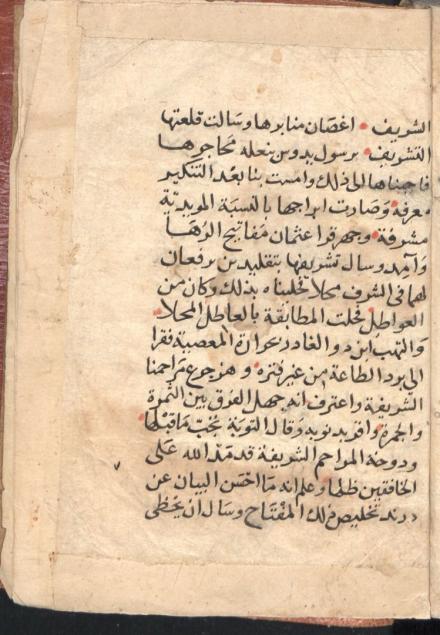 الشريف • اغصان منابرها وسالت قلعتها
التشريف • برسول يدوس بنعله محاجرها
فاجبناها الى ذلك وامست بنا بعد التنكير
معرفة • وصارت ابراجها بالنسبة المويدية
مشرفة • وجهز قرا عثمان مفاتيح الرها
وآمد وسال تشريفها بتقليد بن يرفعان
لهما في الشرف محلا فحلينا بذلك وكان من
العواطل • فحلت المطابقة بالعاطل المحلا •
والتهب ابن دو الغادر بحرارة المعصية ففرا
الى برد الطاعة من غير فترة • وهز جوع مراحمنا
الشريفة واعترف انه جهل الفرق بين التمرة
والجمرة • واقر بذنوبه وقال التوبة تجب ما قبلها •
ودوحة المراحم الشريفة قد مد الله على
الخافقين ظلها • وعلم انه ما احسن البيان عن
درنده تخليص ذلك المفتاح وسال ان يحظى